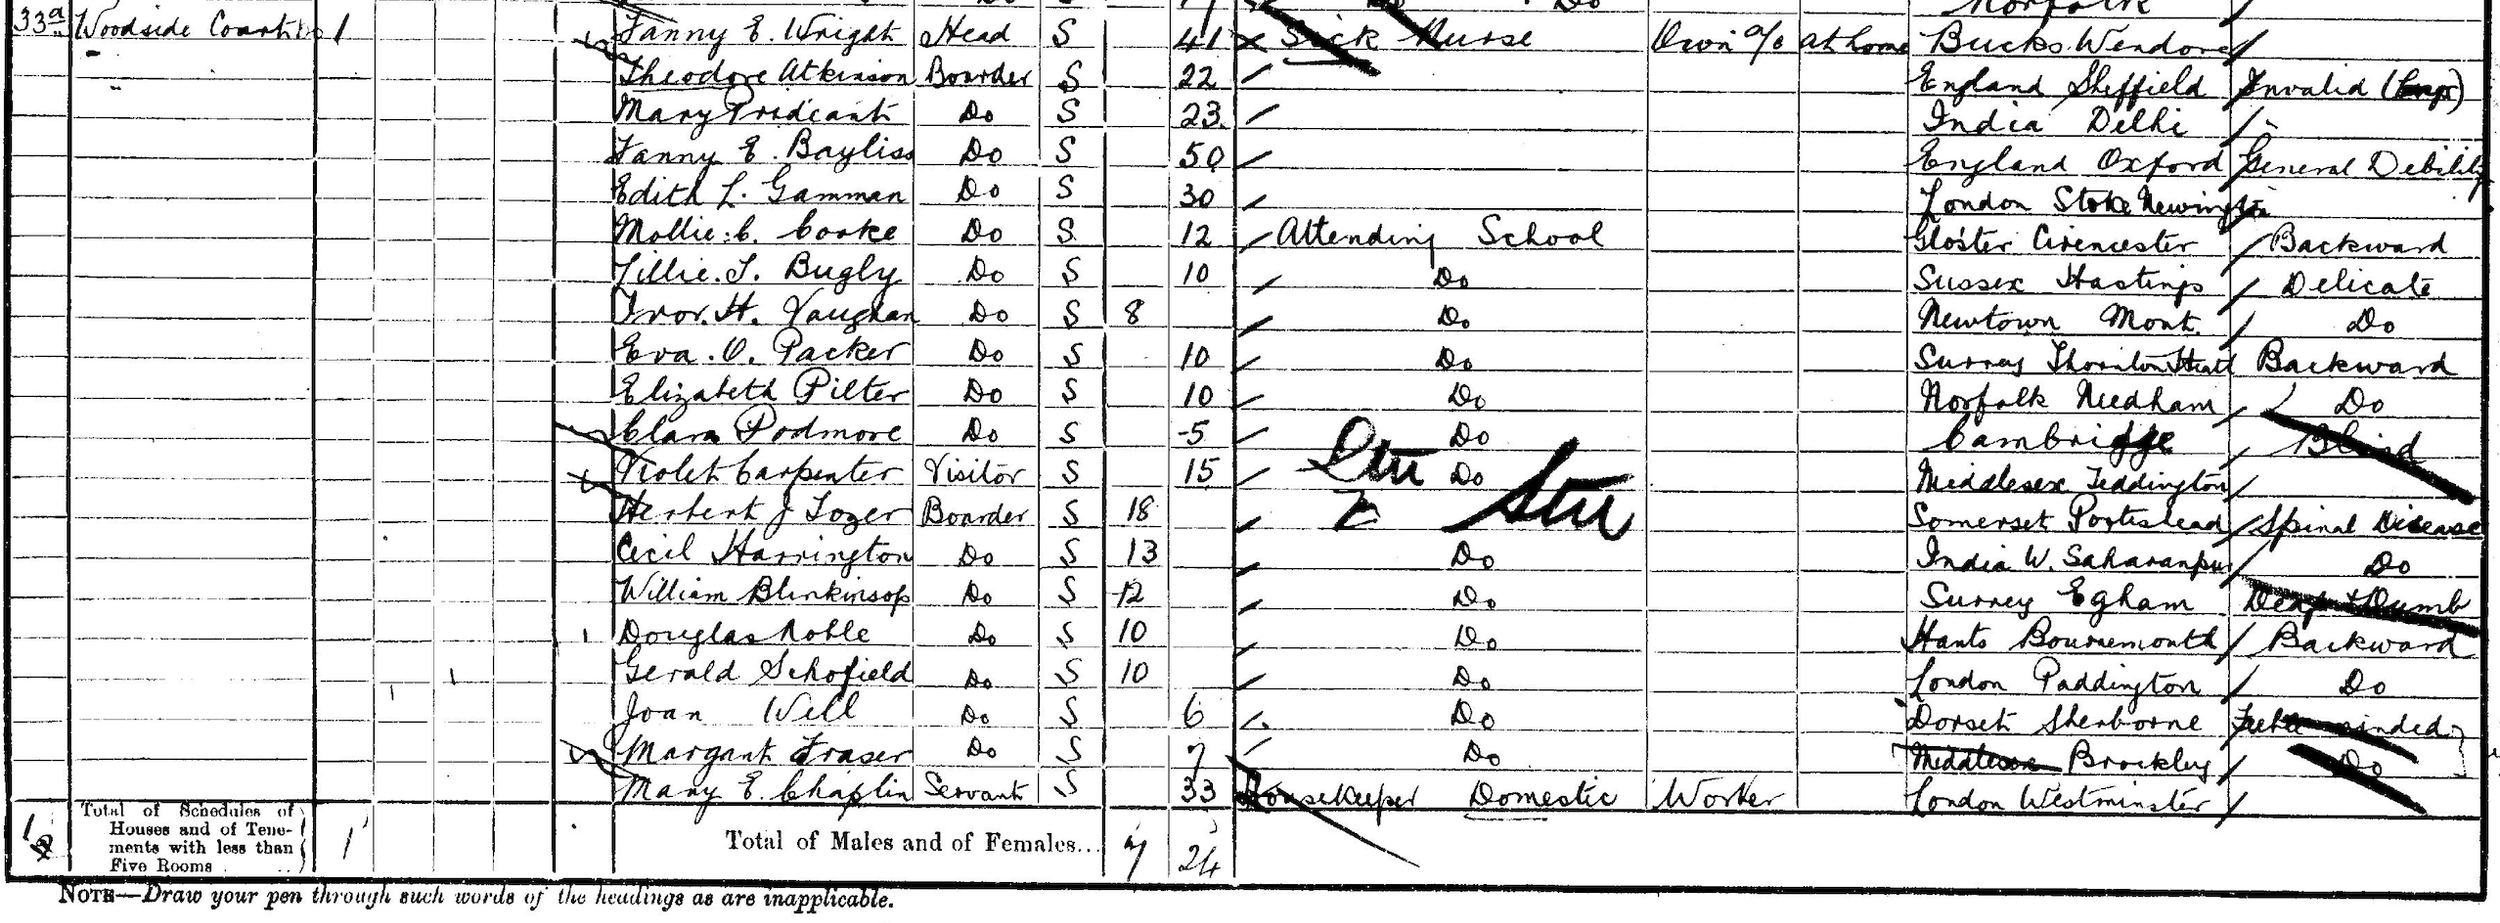 Norfolk /
33a Woodside Court 1 Fanny E. Wright Head S 41 Sick Nurse Own a/c at home Bucks. Wendover
Theodore Atkinson Boarder S 22 England Sheffield Invalid
Mary Do S 23 India Delhi
Fanny E. Bayliss Do S 50 England Oxford General Debility
Edith L. Gamman Do S 30 London Stoke Newington
Mollie. C. Cooke Do S 12 Attending School Gloster Cirencester Backward
Lillie. T. Bugly Do S 10 Do Sussex Hastings Delicate
Ivor. H. Vaughan Do S 8 Do Newtown Mont. Do
Eva. O. Packer Do S 10 Do Surrey Thornton Heath Backward
Elizabeth Pilter Do S 10 Do Norfolk Needham Do
Clara Podmore Do S 5 Do Cambridge Blind
Violet Carpenter Visitor S 15 Do Middlesex Teddington
Herbert J Tozer Boarder S 18 Somerset Portishead Spinal Disease
Cecil Harrington Do S 13 Do India W. Saharanpur Do
William Blinkinsop Do S 12 Do Surrey Egham Deaf & Dumb
Douglas Noble Do S 10 Do Hants Bournemouth Backward
Gerald Schofield Do S 10 Do London Paddington Do
Joan Well Do S 6 Do Dorset Sherborne Feeble minded
Margant Fraser Do S 7 Do Middlesex Brockley Do
Mary E. Chaplin Servant S 33 Housekeeper Domestic Worker London Westminster
Total of Schedules of
Houses and of Tene-
ments with less than
Five Rooms
1
Total of Males and of Females... 7 24
NOTE—Draw your pen through such words of the headings as are inapplicable.